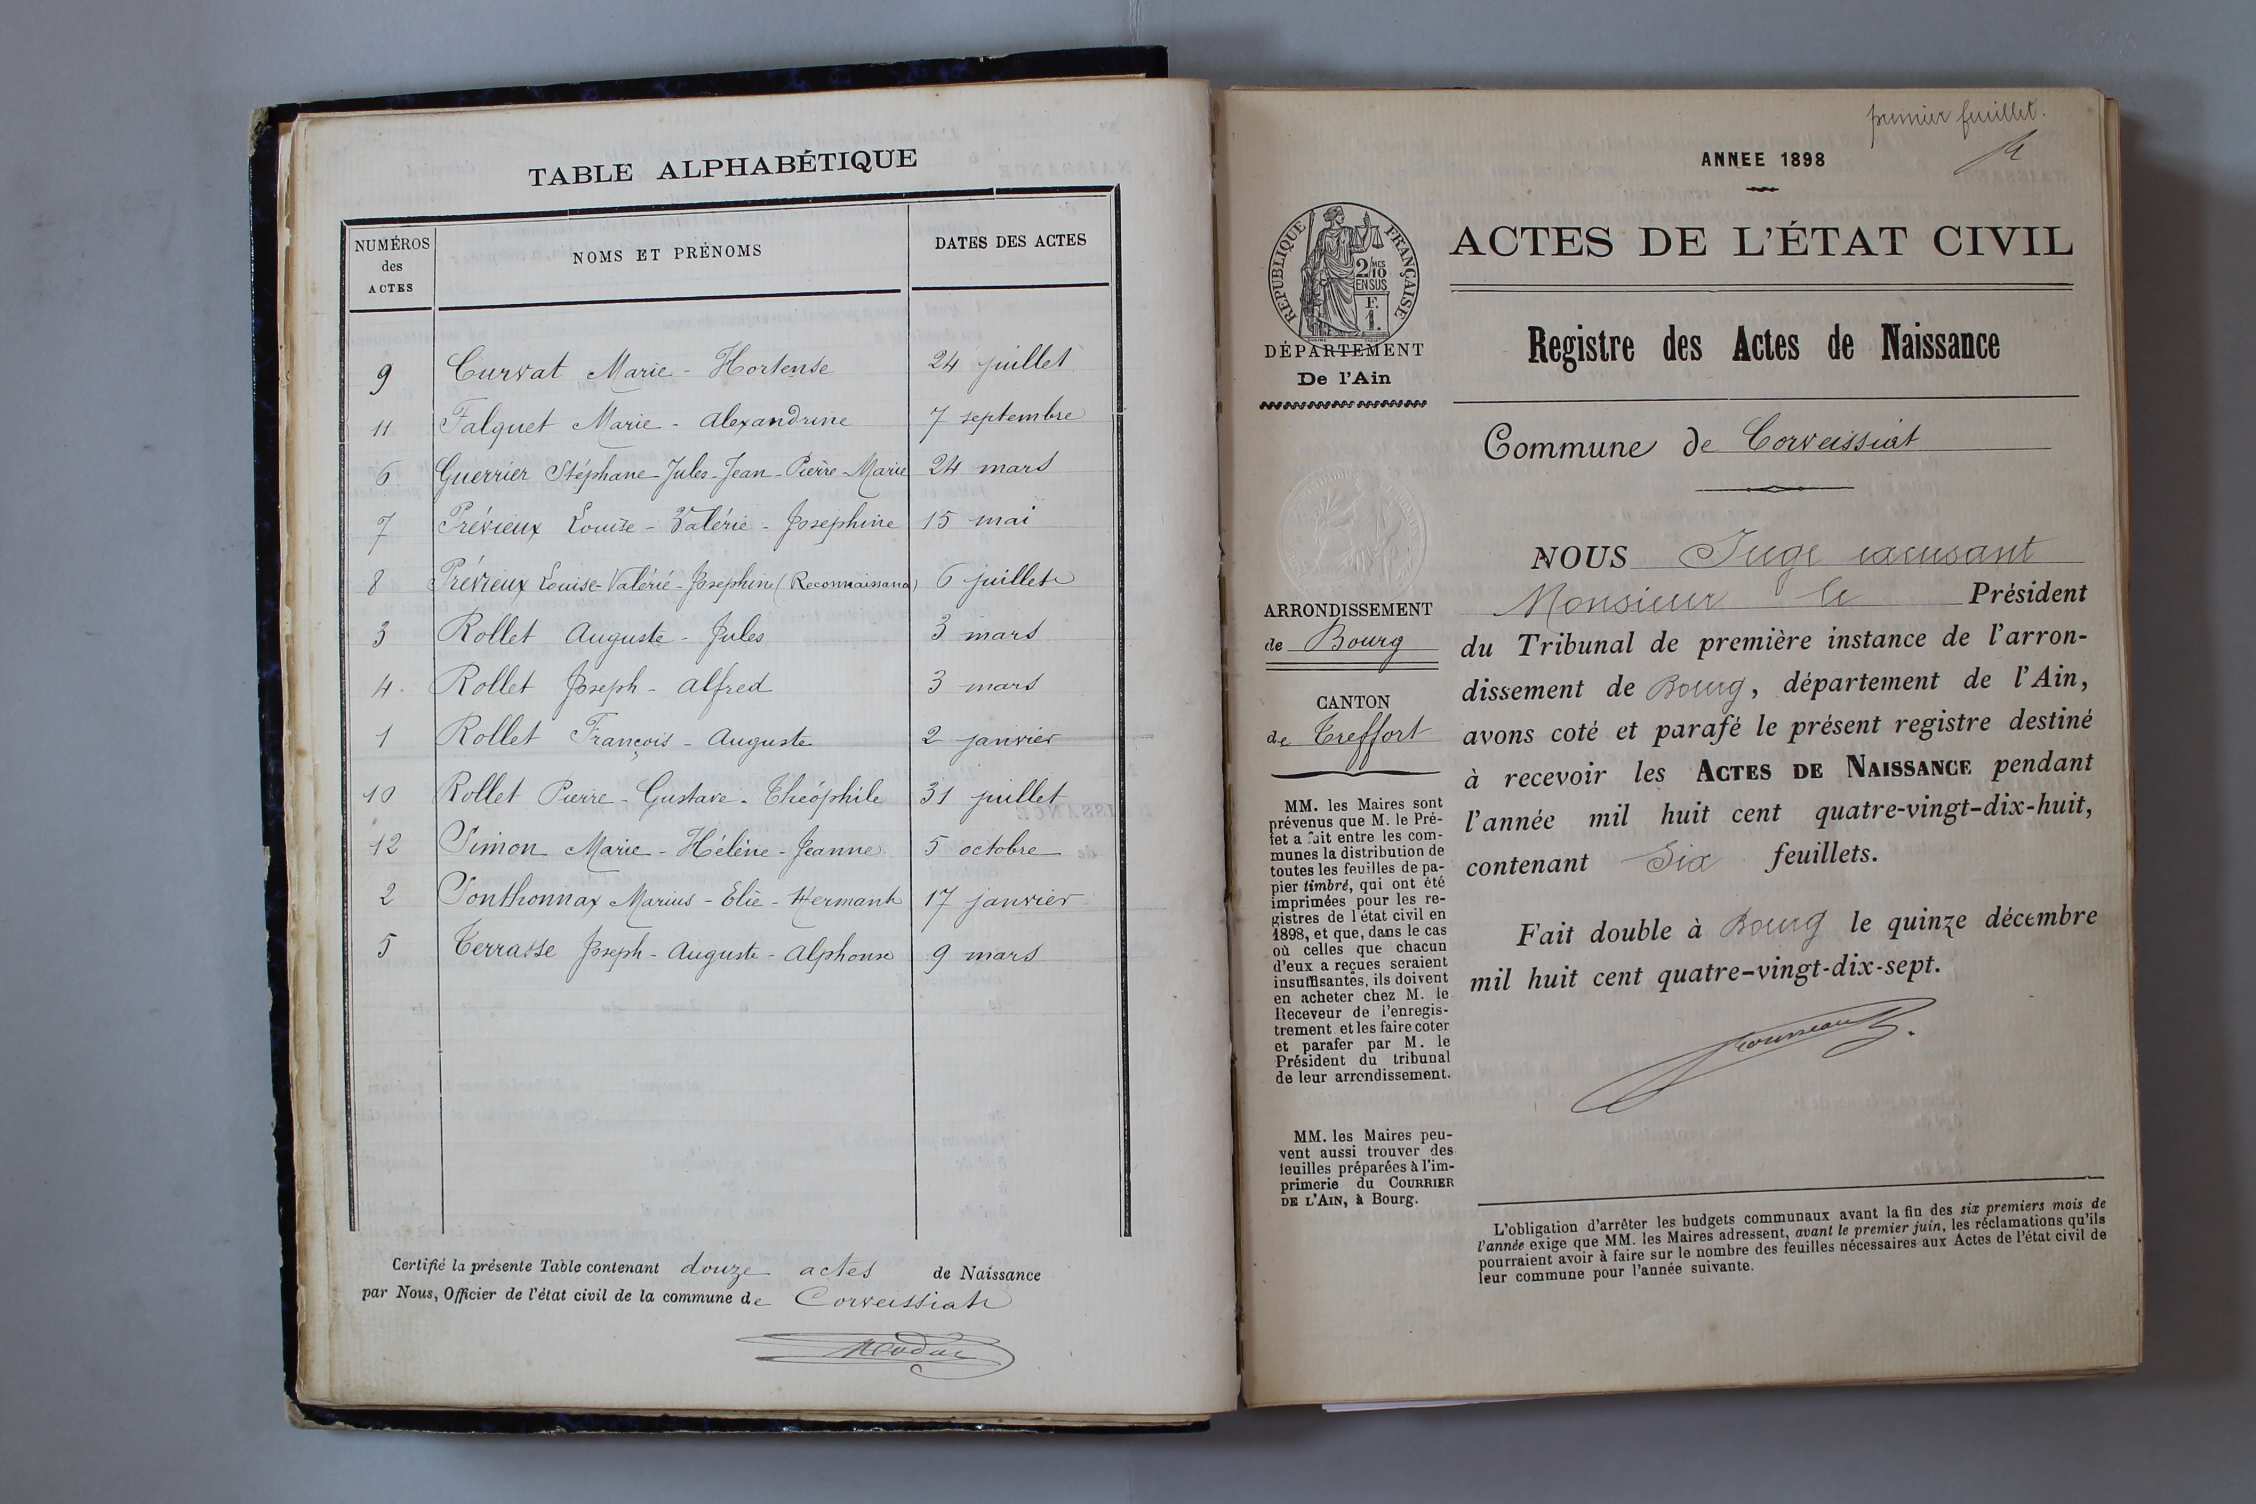 TABLE ALPHABÉTIQUE
NUMÉROS des ACTES NOMS ET PRÉNOMS DATES DES ACTES
9 Curvat Marie - Hortense 24 juillet
11 Falquet Marie - Alexandrine 7 septembre
6 Guerrier Stéphane - Jules - Jean - Pierre - Marie 24 mars
7 Prévieux Louise - Valérie - Joséphine 15 mai
8 Prévieux Louise - Valérie - Joséphine (Reconnaissance) 6 juillet
3 Rollet Auguste - Jules 3 mars
4 Rollet Joseph - Alfred 3 mars
1 Rollet François - Auguste 2 janvier
10 Rollet Pierre - Gustave - Théóphile 31 juillet
12 Simon Marie - Hélène - Jeanne 5 octobre
2 Sonthonnax Marius - Elie - Hermant 17 janvier
5 Terrasse Joseph - Auguste - Alphonse 9 mars
Certifié la présente Table contenant douze actes de Naissance
par Nous, Officier de l'état civil de la commune de Corveissiat
premier feuillet.
ANNEE 1898
ACTES DE L'ÉTAT CIVIL
RÉPUBLIQUE FRANÇAISE
2/10 MES
EN SUS
F.
1.
DÉPARTEMENT
De l'Ain
Registre des Actes de Naissance
Commune de Corveissiat
ARRONDISSEMENT
de Bourg
CANTON
de Treffort
MM. les Maires sont
prévenus que M. le Pré-
fet a fait entre les com-
munes la distribution de
toutes les feuilles de pa-
pier timbré, qui ont été
imprimées pour les re-
gistres de l'état civil en
1898, et que, dans le cas
où celles que chacun
d'eux a reçues seraient
insuffisantes, ils doivent
en acheter chez M. le
Receveur de l'enregis-
trement et les faire coter
et parafer par M. le
Président du tribunal
de leur arrondissement.
MM. les Maires peu-
vent aussi trouver des
feuilles préparées à l'im-
primerie du COURRIER
DE L'AIN, à Bourg.
NOUS Juge
Monsieur le Président
du Tribunal de première instance de l'arron-
dissement de Bourg, département de l'Ain,
avons coté et parafé le présent registre destiné
à recevoir les ACTES DE NAISSANCE pendant
l'année mil huit cent quatre-vingt-dix-huit,
contenant Six feuillets.
Fait double à Bourg le quinze décembre
mil huit cent quatre-vingt-dix-sept.
L'obligation d'arrêter les budgets communaux avant la fin des six premiers mois de
l'année exige que MM. les Maires adressent, avant le premier juin, les réclamations qu'ils
pourraient avoir à faire sur le nombre des feuilles nécessaires aux Actes de l'état civil de
leur commune pour l'année suivante.